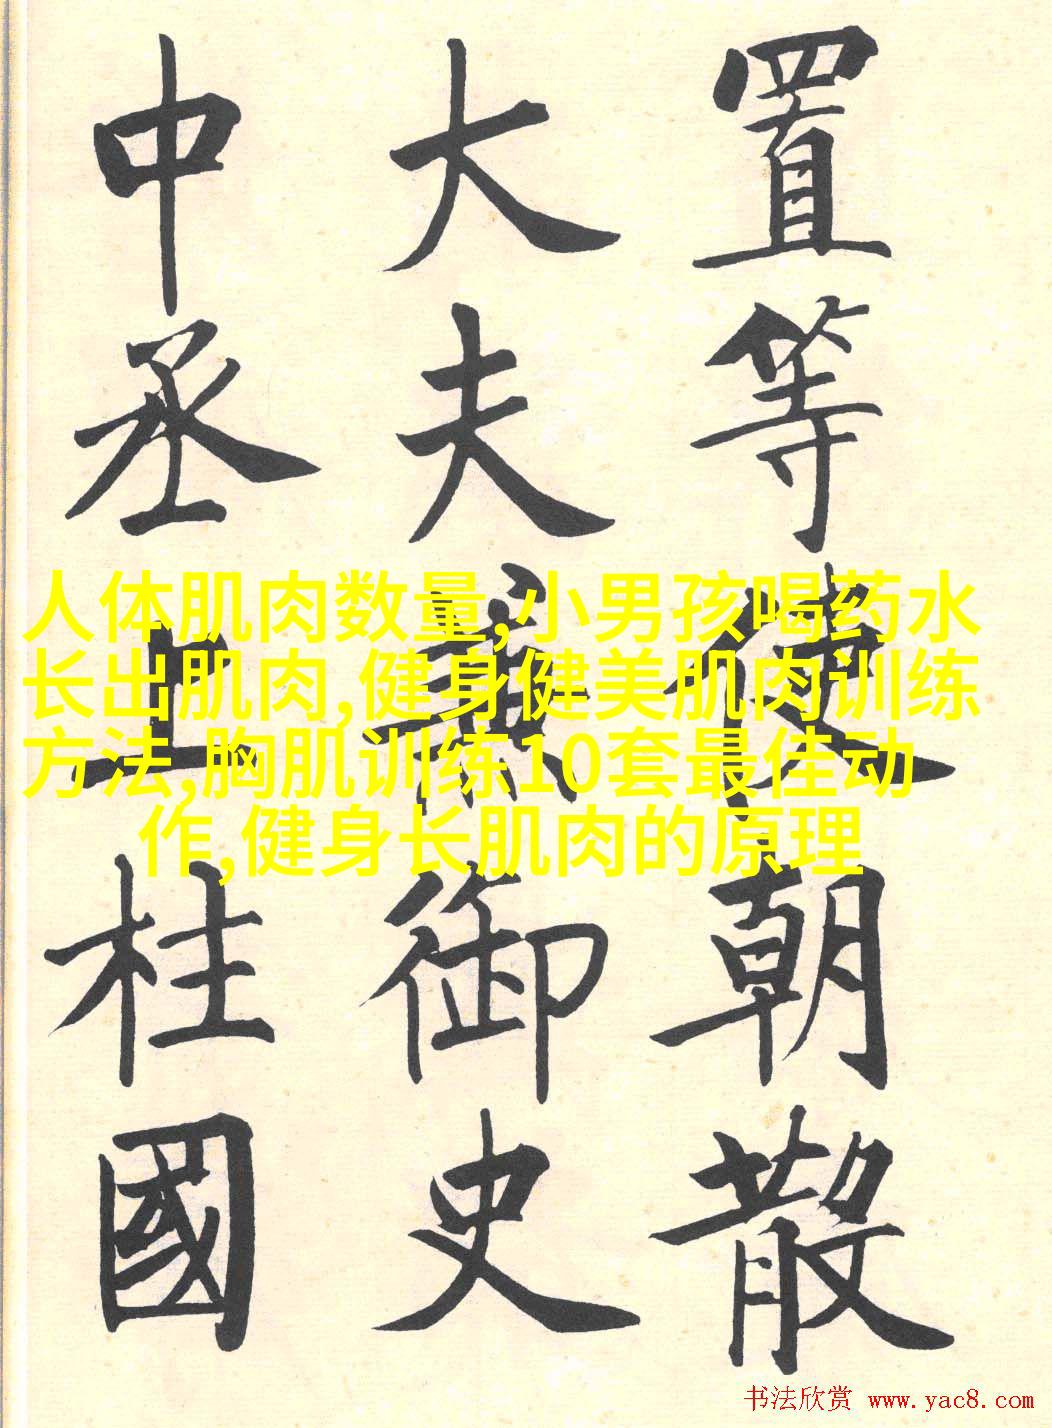 置等使朝散
大夫兼御史
中丞上柱國
人体肌肉数量,小男孩喝药水
长出肌肉,健身健美肌肉训练
方法,胸肌训练10套最佳动
作,健身长肌肉的原理
书法欣赏 www.yac8.com